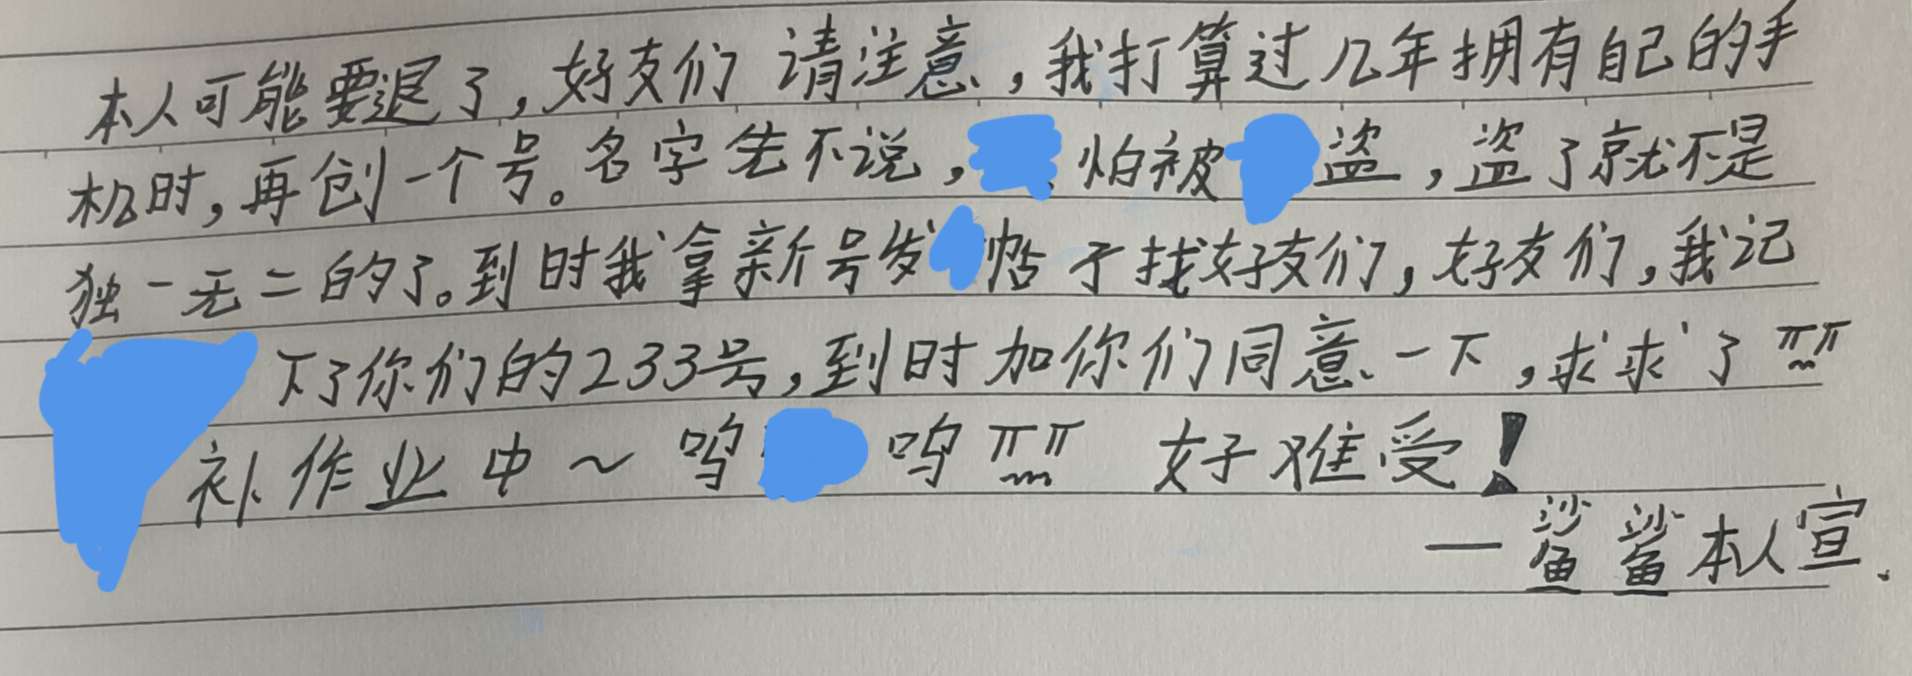 本人可能要退了,好友们 请注意,我打算过几年拥有自己的手
机时,再创一个号。名字先不说,怕被盗,盗了就不是
独一无二的了。到时我拿新号发帖子找好友们,好友们,我记
下了你们的233号,到时加你们同意一下,求求了
补作业中~呜呜 好难受!
—鲨鲨本人宣.